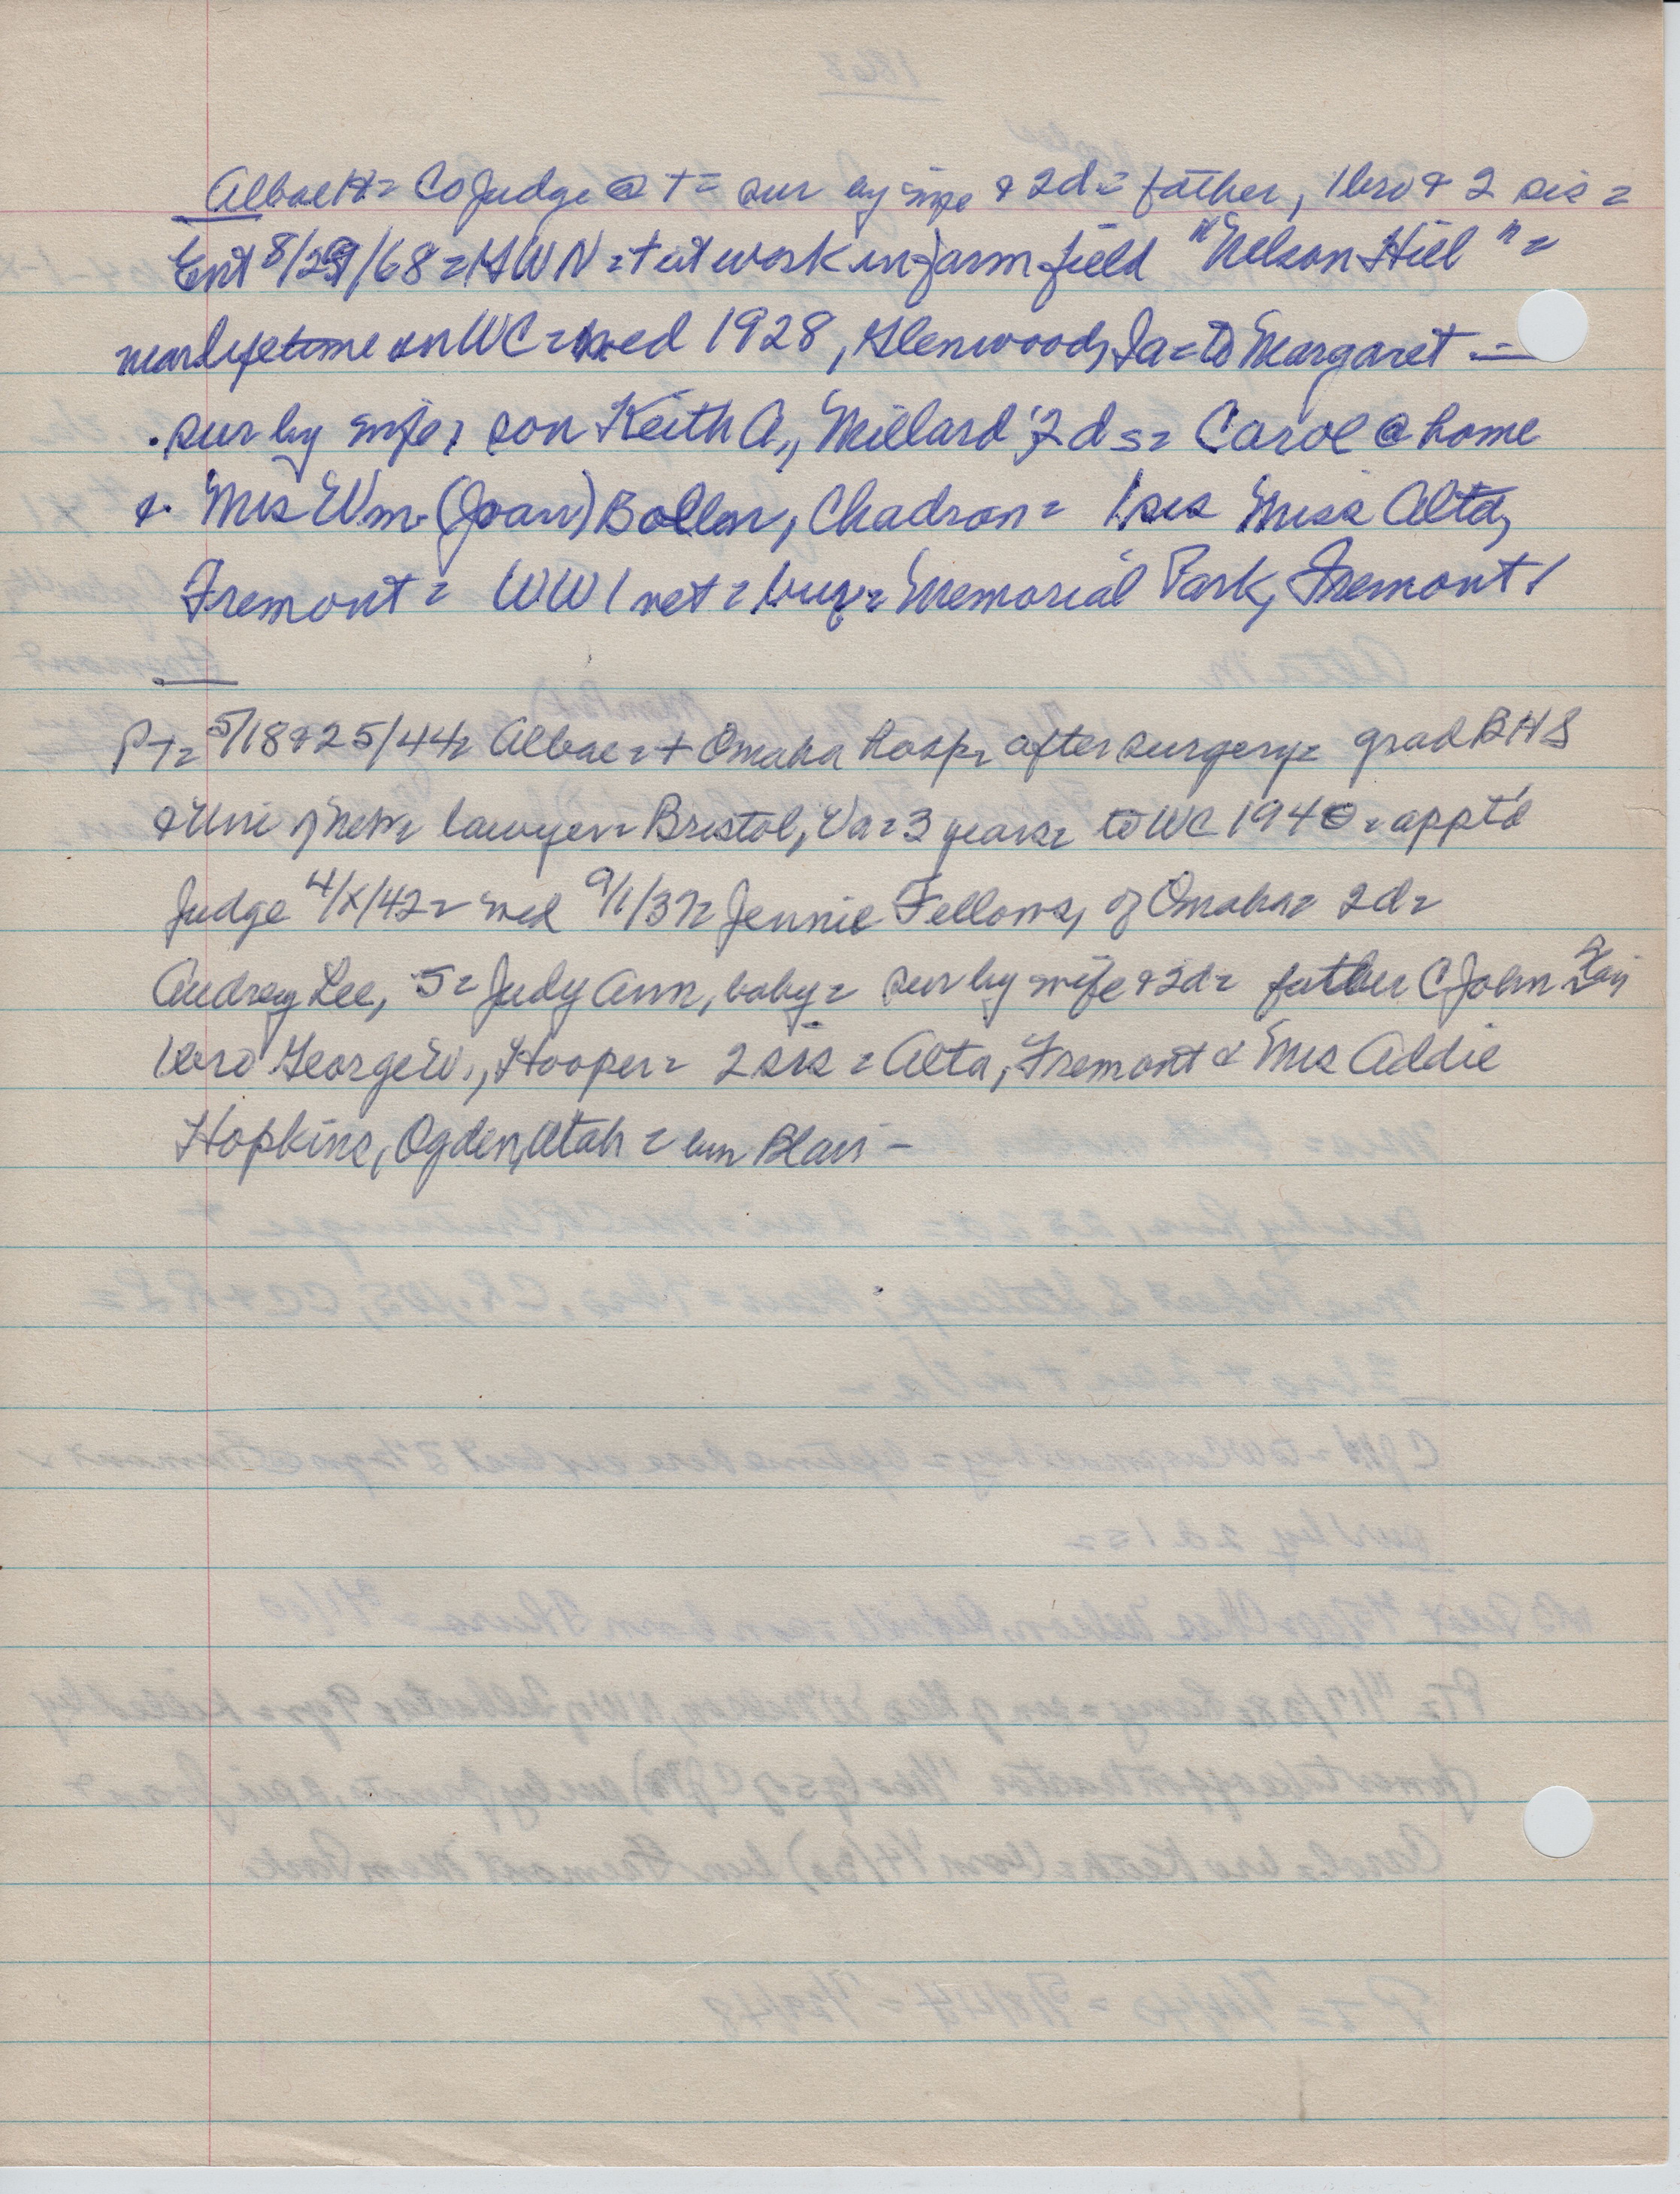 Albae H = Co Judge @ + = sur by wife & 2d = father, 1 bro & 2 sis =
Ent 8/29/68 = GWN = + at work in farm field "Nelson Hill" =
near lifetime on WC = wed 1928, Glenwood, Ia = to Margaret —
sur by wife, son Keith A., Millard, 2 ds = Carol @ home
& Mrs Wm. (Joan) Bollen, Chadron = 1 sis Miss Alta,
Fremont = WW1 vet = bur = Memorial Park, Fremont /
PT = 5/18 & 25/44 = Albae = + Omaha hosp = after surgery = grad BHS
& Uni of Neb = lawyer = Bristol, Va = 3 years = to WC 1940 = appt'd
Judge 4/X/42 = wed 9/1/37 = Jennie Fellows, of Omaha = 2d =
Audrey Lee, 5 = Judy Ann, baby = sur by wife & 2d = father C John
1 bro George W., Hooper = 2 sis = Alta, Fremont & Mrs Addie
Hopkins, Ogden, Utah = bur Blair –